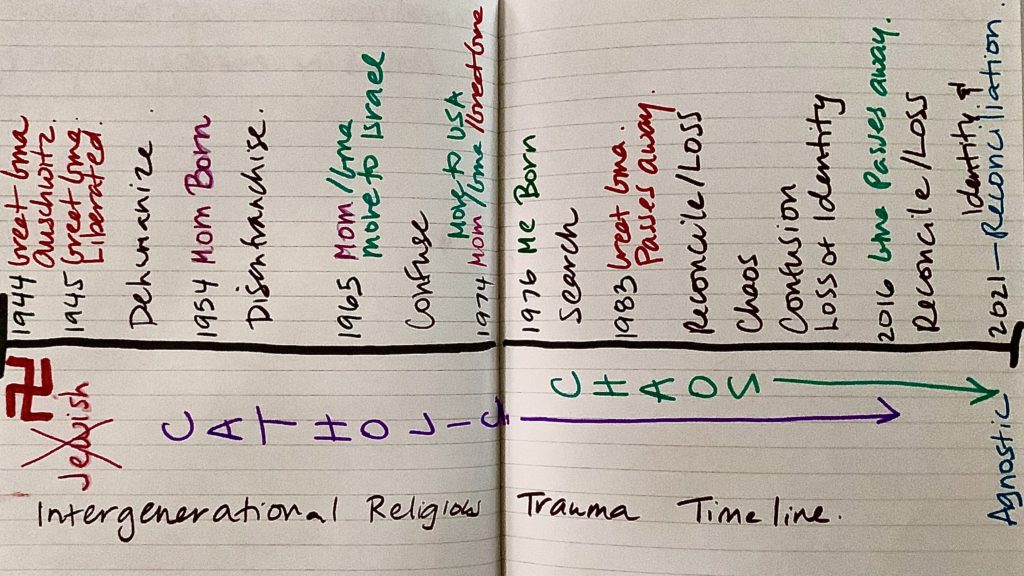 1944 Great Gma
Auschwitz
1945 Great Gma
Liberated.
Dehumanize
1954 Mom Born
Disenfranchise.
1965 Mom/Gma
move to Israel
Confuse
Move to USA
1974 Mom/Gma/Great Gma
1976 Me Born
Search
1983 Great Gma.
Passes away.
Reconcile/Loss
Chaos
Confusion
Loss of Identity
2016 Gma Passes away.
Reconcile/Loss
Identity &
2021 – Reconciliation.
Jewish
CATHOLIC
CHAOS
Agnostic
Intergenerational Religious Trauma Timeline.